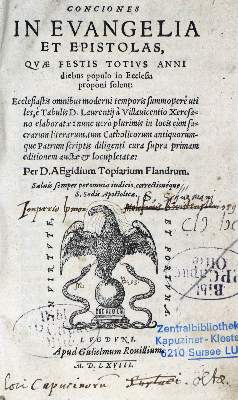 CONCIONES
IN EVANGELIA
ET EPISTOLAS,
QVÆ FESTIS TOTIVS ANNI
diebus populo in Ecclesia
proponi solent:
Ecclesiastis omnibus moderni temporis summoperè uti
les, è Tabulis D. Laurentij à Villauicentio Xeresa-
no elaboratæ: nunc uerò plurimis in locis cùm sa-
crarum literarum, tum Catholicorum antiquorum-
que Patrum scriptis diligenti cura supra primam
editionem auctæ & locupletatæ:
Per D. Ægidium Topiarium Flandrum.
Saluis semper per omnia iudicio, correctioneque
S. Sedis Apostolicæ.
IN VIRTVTE,
ET FORTVNA.
LVGDVNI,
Apud Gulielmum Rouillium,
M. D. LXVIII.
Zentralbibliothek
Kapuziner-Kloste
6210 Sursee LU
loci Capucinorum